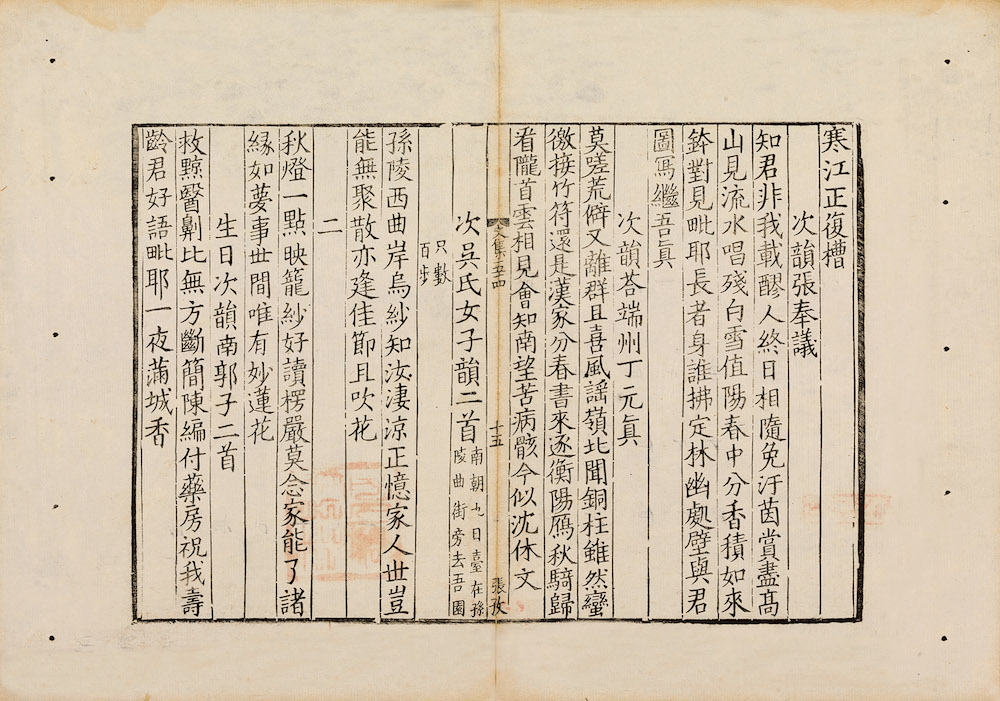 寒江正復槽
次韻張奉議
知君非我載醪人終日相隨免汙茵賞盡髙
山見流水唱殘白雪值陽春中分香積如來
鉢對見毗耶長者身誰拂定林幽處壁與君
圖寫繼吾眞
次韻荅端州丁元眞
莫嗟荒僻又離群且喜風謡嶺北聞銅柱雖然蠻
徼接竹符還是漢家分春書來逐衡陽鴈秋騎歸
看隴首雲相見會知南望苦病骸今似沈休文
文集三十四
十五
張孜
次吳氏女子韻二首南朝九日臺在孫陵曲街旁去吾園
只數百步
孫陵西曲岸烏紗知汝淒涼正憶家人世豈
能無聚散亦逢佳節且吹花
二
秋燈一點映籠紗好讀楞嚴莫念家能了諸
緣如夢事世間唯有妙蓮花
生日次韻南郭子二首
救黥醫劓比無方斷簡陳編付藥房祝我壽
齡君好語毗耶一夜滿城香